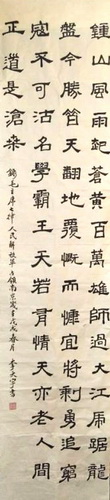 鍾山風雨起蒼黃百萬雄師過大江虎踞龍
盤今勝昔天翻地覆慨而慷宜將剩勇追窮
寇不可沽名學霸王天若有情天亦老人間
正道是滄桑
錄毛主席七律人民解放軍占領南京 春月 書